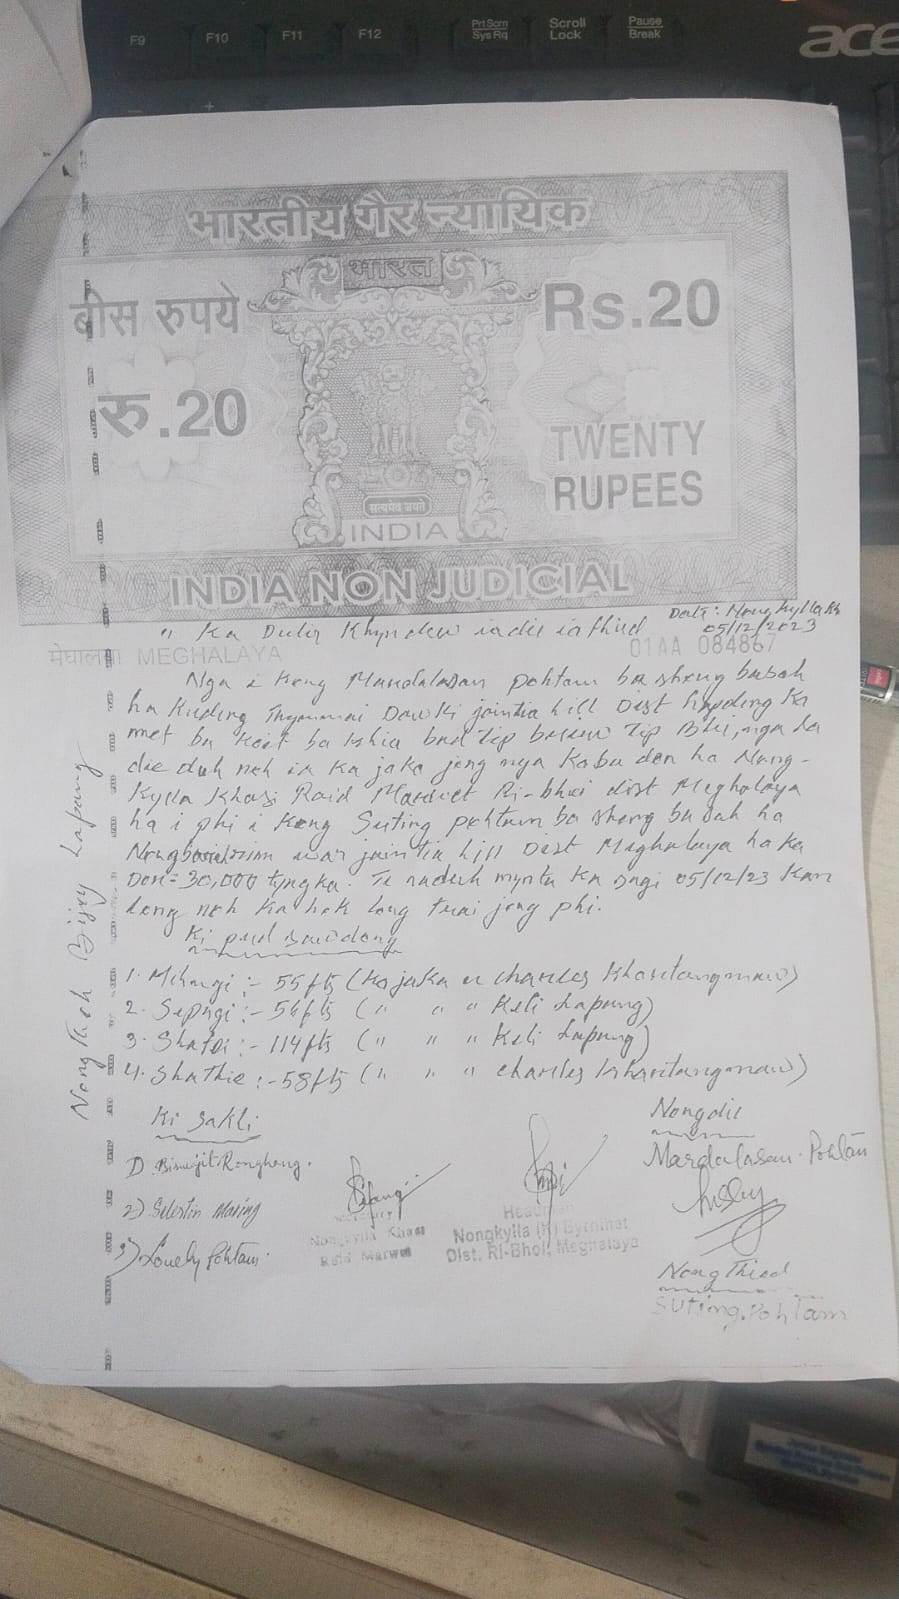 F9 F10 F11 F12 Prt Scrn Sys Rq Scroll Lock Pause Break
ace
भारतीय गैर न्यायिक
भारत
बीस रुपये Rs.20
रु.20 TWENTY
RUPEES
सत्यमेव जयते
INDIA
INDIA NON JUDICIAL
Date: Nongkylla Kh
" Ka Dulir Khyndew iadie iathied 05/12/2023
मेघालय MEGHALAYA 01AA 084867
Nga i Kong Mardalasan pohtam ba sheng basah
ha Kuding Thymmai Dawki jaintia hill Dist hapdeng Ka
met ba Koit ba Khia bad tip briew tip Blei, nga la
die duh noh ia ka jaka jong nga Kaba don ha Nong-
Kylla Khasi Raid Marwet Ri-bhoi dist Meghalaya
ha i phi i Kong Suting pohtam ba sheng basah ha
war jaintia hill Dist Meghalaya ha ka
Dor = 30,000 tyngka. Te naduh mynta ka sngi 05/12/23 Kan
long noh ka hok long trai jong phi.
Ki pud sawdong
1. Mihngi :- 55fts (Ka jaka u charles Kharitangmaw)
2. Sepngi :- 56fts (" " " Keli Lapang)
3. Shatei :- 114fts (" " " Keli Lapang)
4. Shathie :- 58fts (" " " charles Kharitangmaw)
Nongthoh Bijoy Lapang
Ki Sakhi Nongdie
1) Biswajit Ronghang. Mardalasan. Pohtam
2) Selestin Maring
Secretary Headman
Nongkylla Khasi Nongkylla (K) Byrnihat
Raid Marwet Dist. Ri-Bhoi, Meghalaya
3) Lovely Pohtam.
Nongthied
Suting. Pohtam